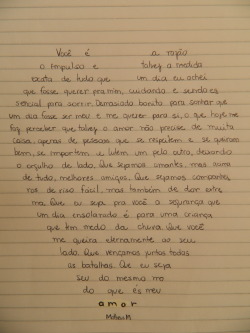 Você é a razão
o impulso e talvez a medida
exata de tudo que um dia eu achei
que fosse querer pra mim, cuidando e sendo es
sencial para sorrir. Demasiado bonito para sonhar que
um dia fosse ser meu e me querer para si, o que hoje me
faz perceber que talvez o amor não precise de muita
coisa, apenas de pessoas que se respeitem e se queiram
bem, se importem e lutem um pelo outro, deixando
o orgulho de lado. Que sejamos amantes, mas acima
de tudo, melhores amigos. Que sejamos companhei
ros de riso fácil, mas também de dor extre
ma. Que eu seja pra você a segurança que
um dia ensolarado é para uma criança
que tem medo da chuva. Que você
me queira eternamente ao seu
lado. Que vençamos juntos todas
as batalhas. Que eu seja
seu do mesmo mo
do que és meu
amor